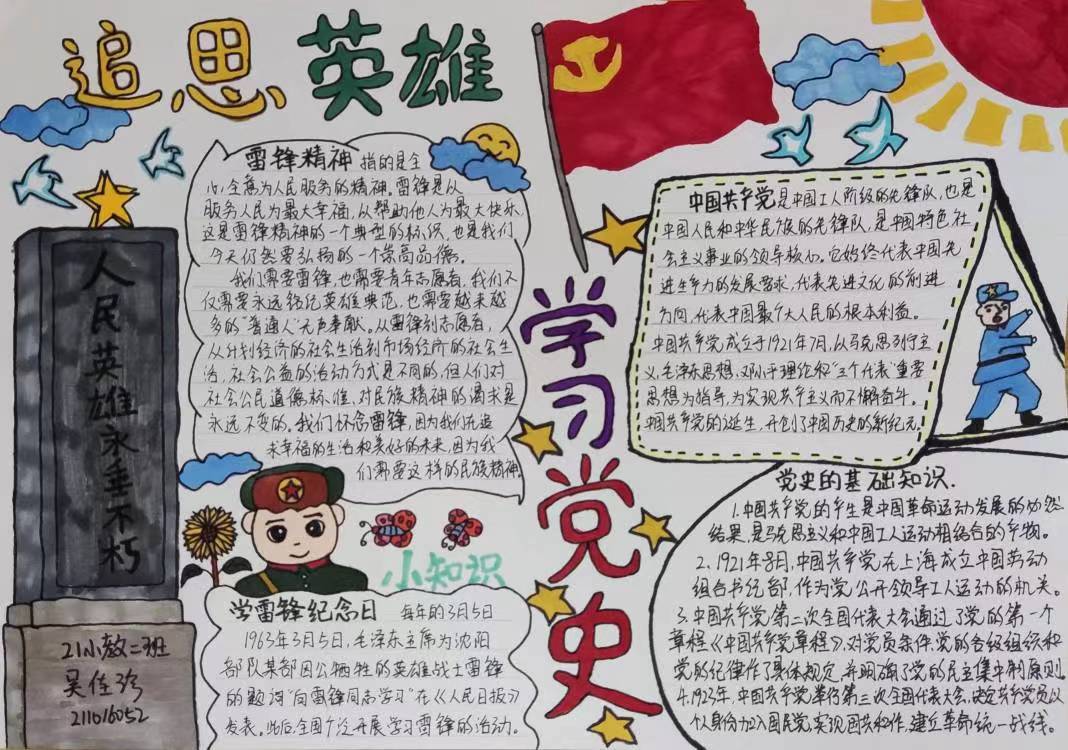 追思英雄
雷锋精神 指的是全
心全意为人民服务的精神,雷锋是以
服务人民为最大幸福,以帮助他人为最大快乐,
这是雷锋精神的一个典型的标识,也是我们
今天仍然要弘扬的一个崇高品德。
我们需要雷锋,也需要青年志愿者,我们不
仅需要永远铭记英雄典范,也需要越来越
多的“普通人”无声奉献。从雷锋到志愿者,
从计划经济的社会生活到市场经济的社会生
活,社会公益的活动方式是不同的,但人们对
社会公民道德标准,对民族精神的渴求是
永远不变的。我们怀念雷锋,因为我们在追
求幸福的生活和美好的未来,因为我
们需要这样的民族精神
人民英雄永垂不朽
21小教二班
吴佳玲
211016052
小知识
学雷锋纪念日 每年的3月5日
1963年3月5日,毛泽东主席为沈阳
部队某部因公牺牲的英雄战士雷锋
的题词“向雷锋同志学习”在《人民日报》
发表。此后,全国广泛开展学习雷锋的活动。
学习党史
中国共产党是中国工人阶级的先锋队,也是
中国人民和中华民族的先锋队,是中国特色社
会主义事业的领导核心。它始终代表中国先
进生产力的发展要求,代表先进文化的前进
方向,代表中国最广大人民的根本利益。
中国共产党成立于1921年7月,以马克思列宁主
义,毛泽东思想,邓小平理论和“三个代表”重要
思想为指导,为实现共产主义而不懈奋斗。
中国共产党的诞生,开创了中国历史的新纪元。
党史的基础知识.
1.中国共产党的产生是中国革命运动发展的必然
结果,是马克思主义和中国工人运动相结合的产物。
2.1921年8月,中国共产党在上海成立中国劳动
组合书记部,作为党公开领导工人运动的机关。
3.中国共产党第二次全国代表大会通过了党的第一个
章程《中国共产党章程》,对党员条件,党的各级组织和
党的纪律作了具体规定,并明确了党的民主集中制原则
4.1923年,中国共产党举行第三次全国代表大会,决定共产党员以
个人身份加入国民党,实现国共和作,建立革命统一战线。